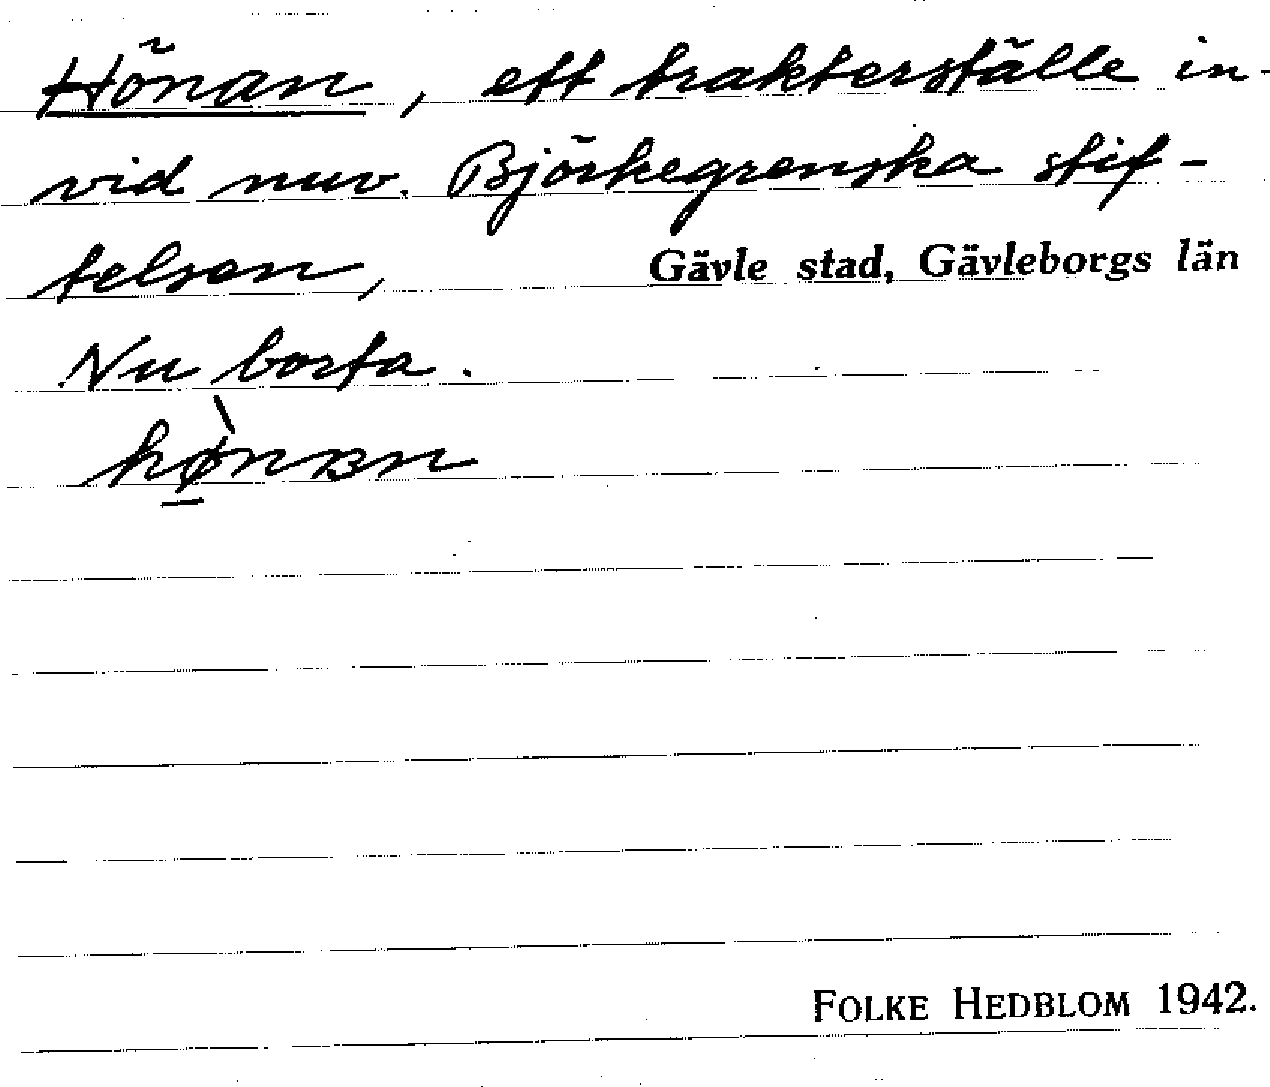 Hönan, ett trakterställe in-
vid nuv. Björkegrenska stif-
telsen,
Gävle stad, Gävleborgs län
Nu borta.
hø̱̀nɐn
FOLKE HEDBLOM 1942.